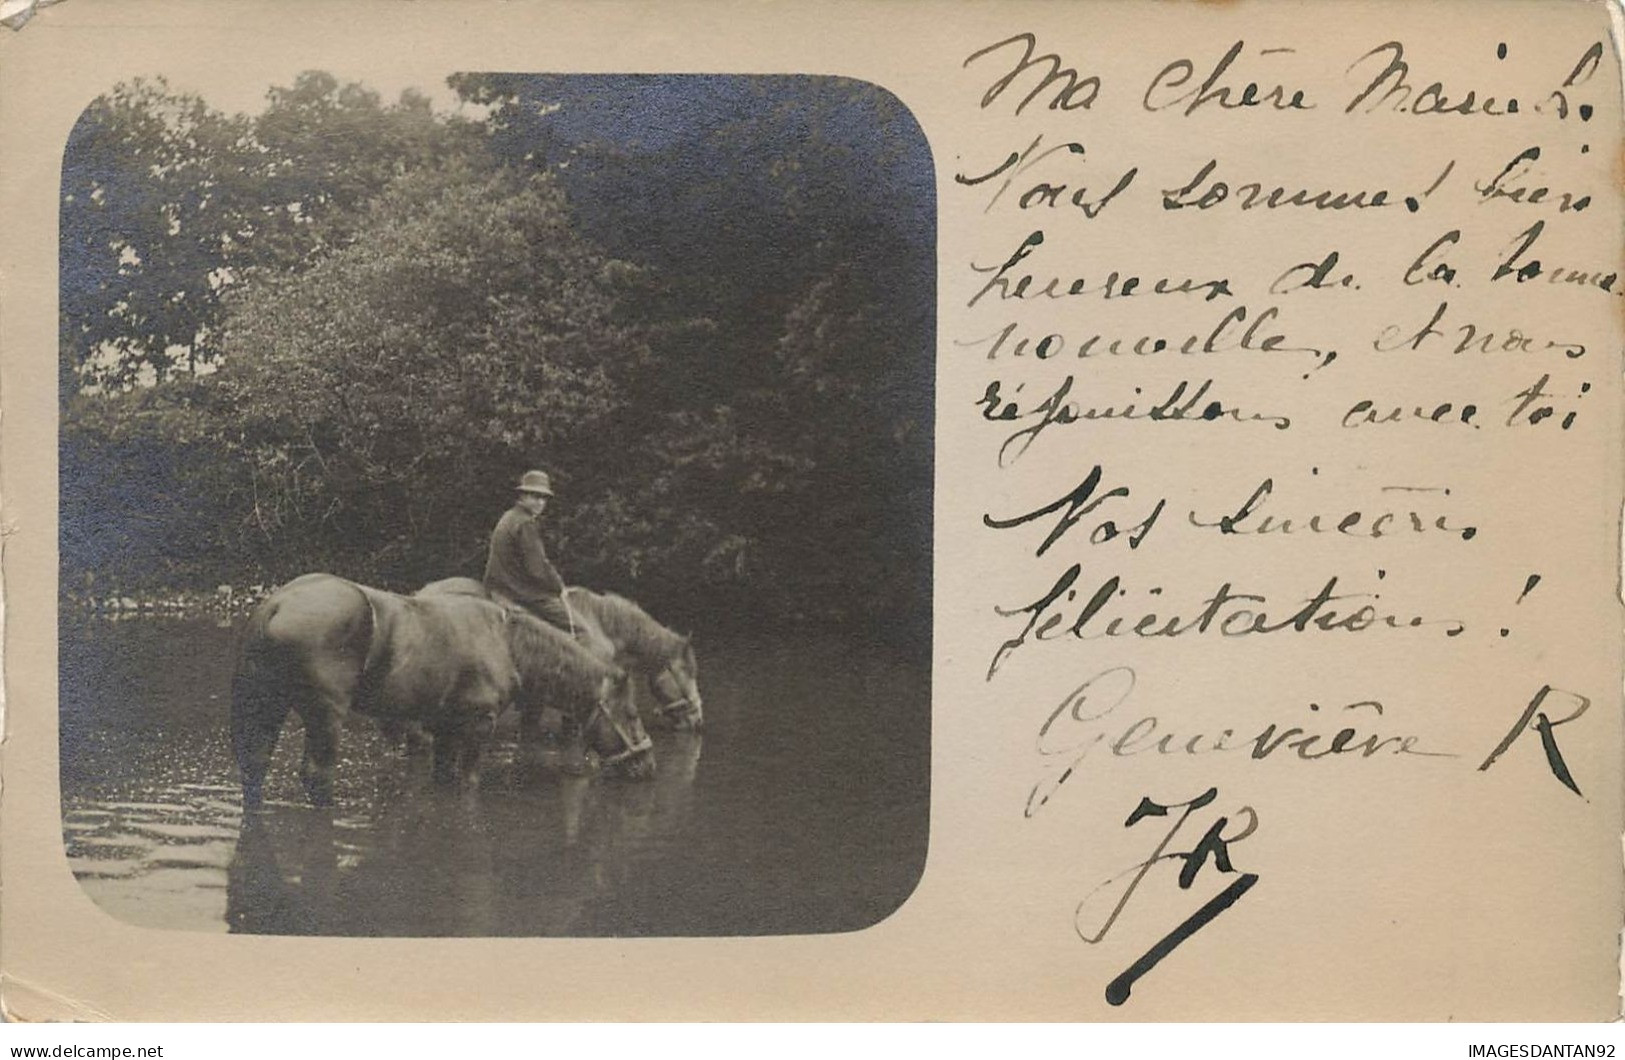 Ma chère Marie L.
Nous sommes bien
heureux de la bonne
nouvelle, et nous
réjouissons avec toi
Nos sincères
félicitations !
Geneviève R
JR
IMAGESDANTAN92